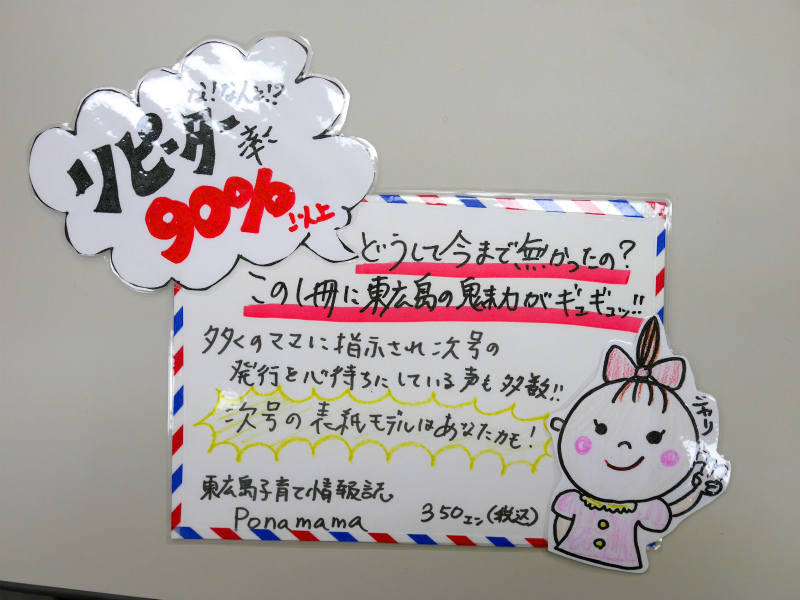 な!なんと!?
リピーター率
90%以上
どうして今まで無かったの?
この1冊に東広島の魅力がギュギュッ!!
多くのママに指示され次号の
発行を心待ちにしている声も多数!!
次号の表紙モデルはあなたかも!
東広島子育て情報誌
Ponamama
350エン(税込)